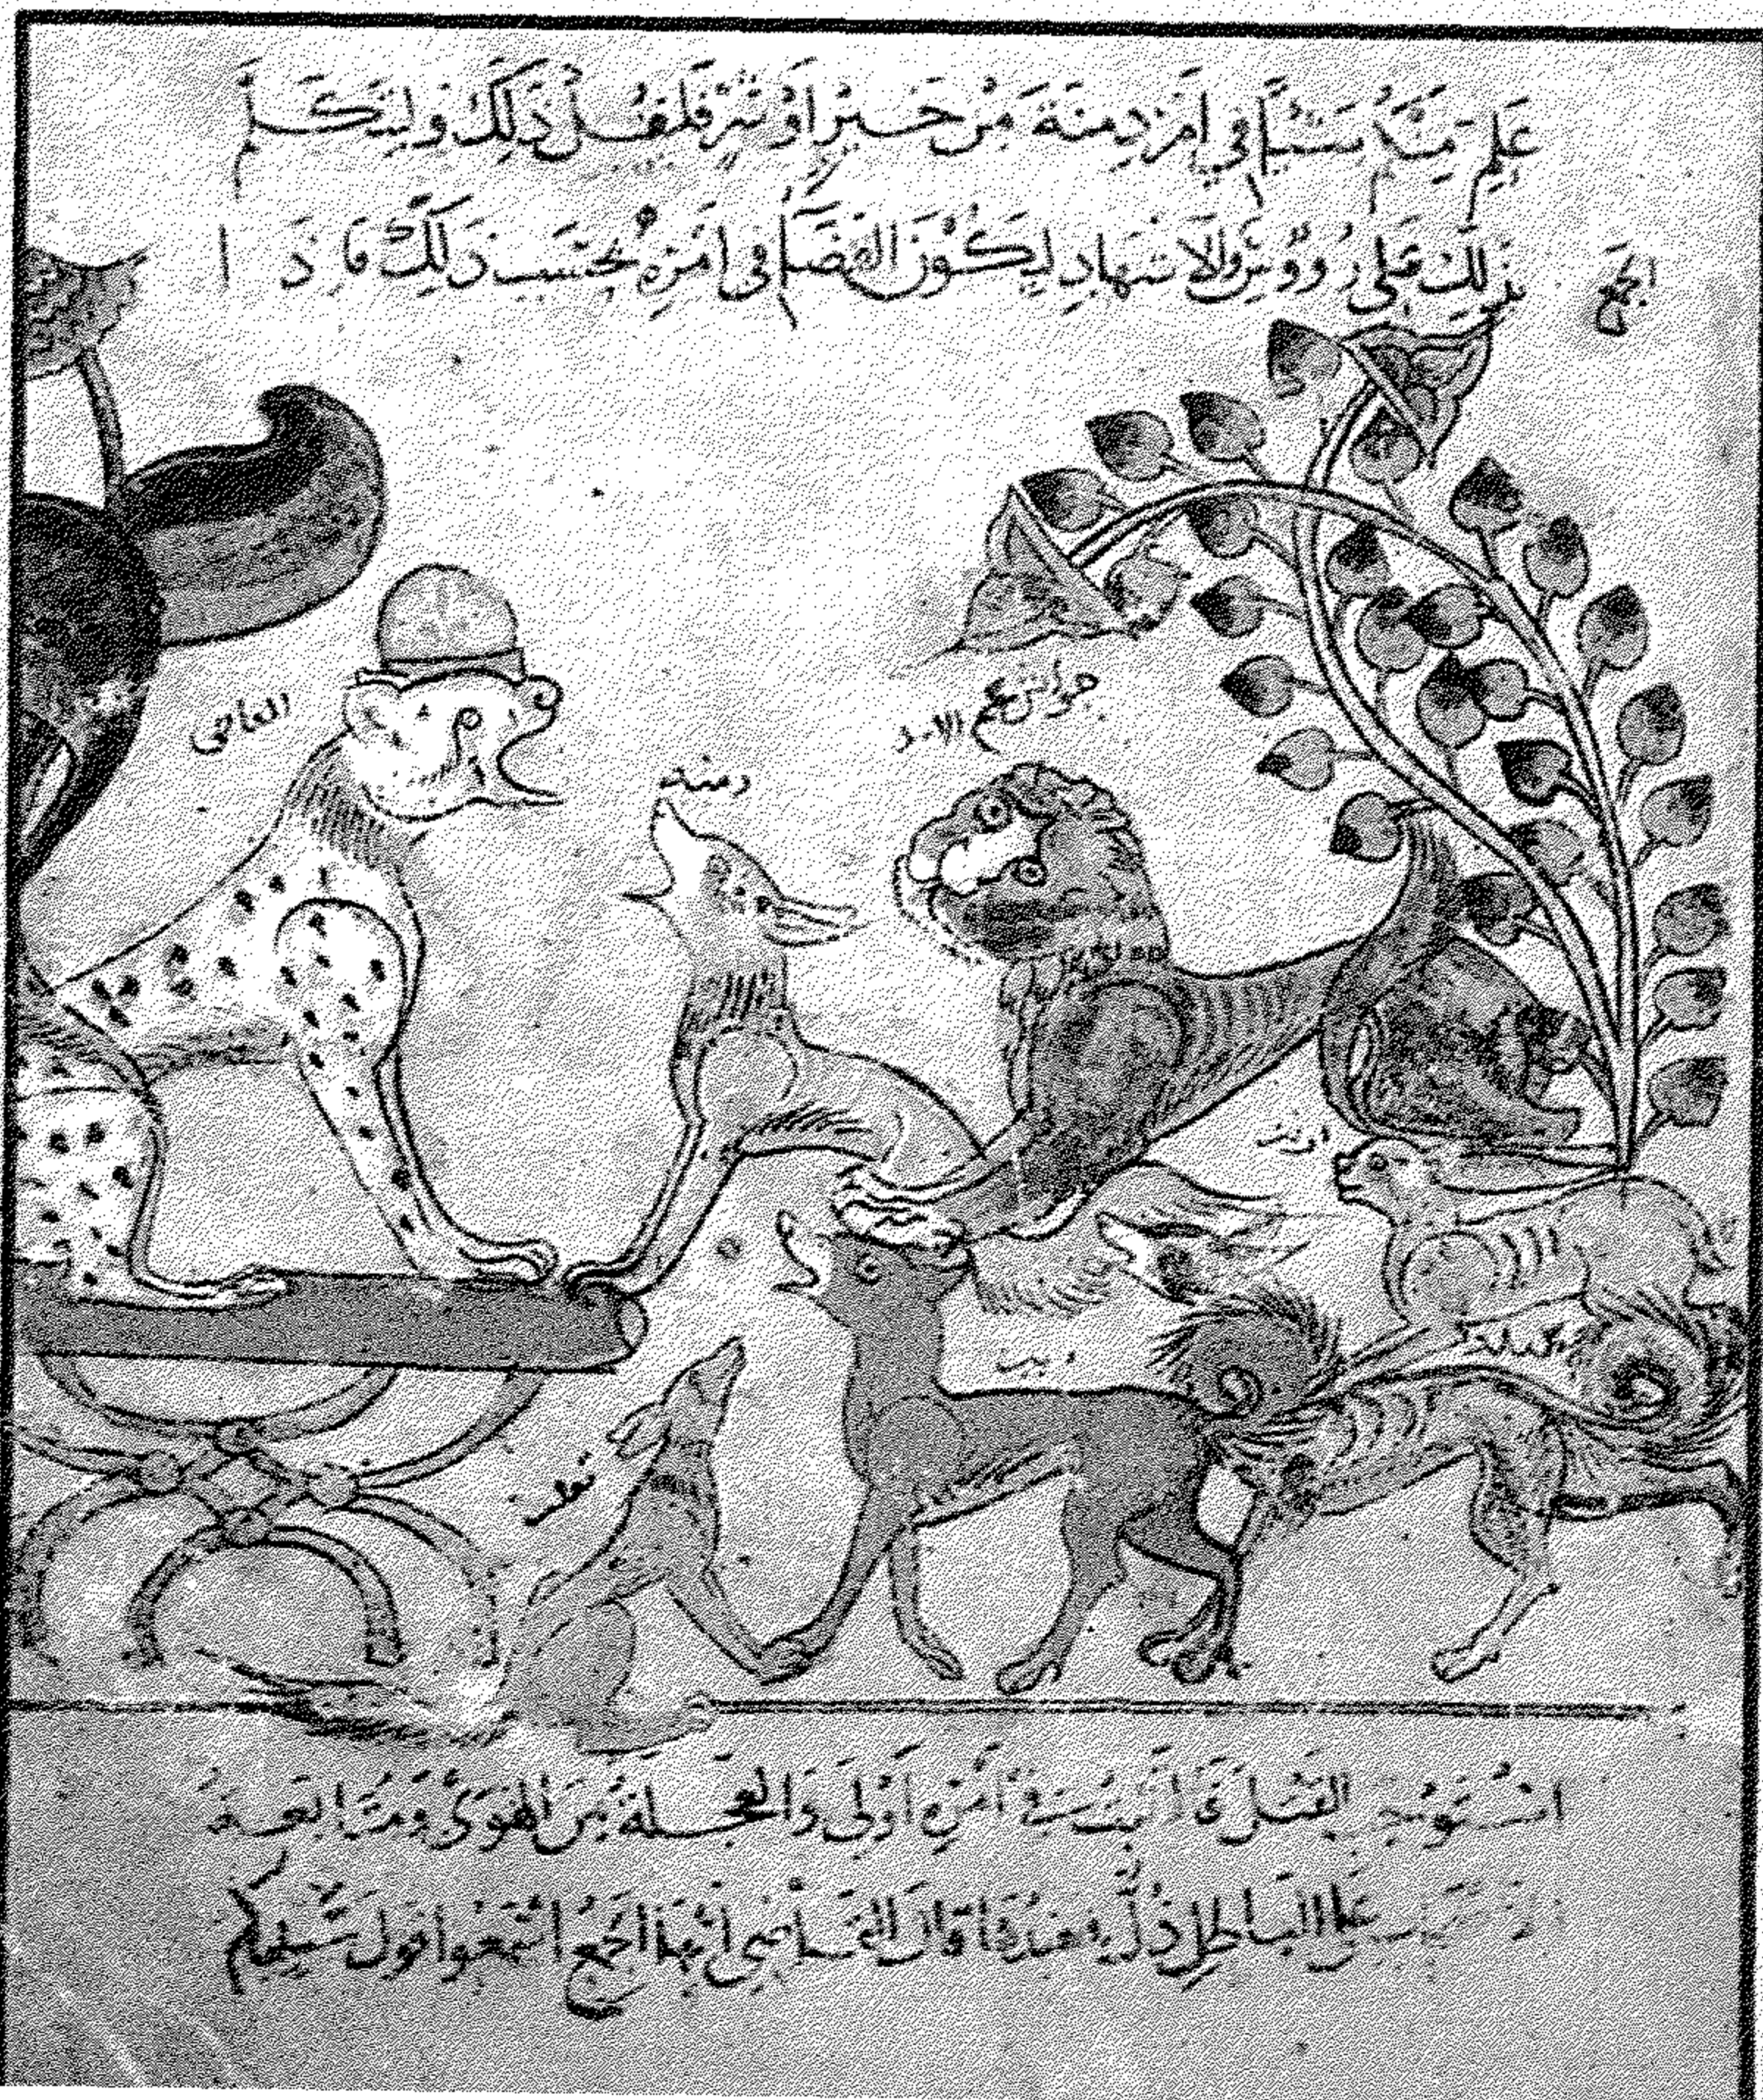 عَلِمَ مِنْهُ شَيْئًا فِي أَمْرِ دِمْنَةَ مِنْ خَيْرٍ أَوْ شَرٍّ فَلْيَقُلْ ذَلِكَ وَلْيَتَكَلَّمْ
بِذَلِكَ عَلَى رُؤُوسِ الأَشْهَادِ لِيَكُونَ القَضَاءُ فِي أَمْرِهِ بِحَسَبِ ذَلِكَ فَاِذَا
الجمع
جواش عم الاسد
دمنة
ارنب
ديب
ثعلب
اسْتَوْجَبَ القَتْلَ فَالتثبت فِي أَمْرِهِ أَوْلَى وَالعَجَلَةُ مِنَ الهَوَى وَمُتَابَعَةُ
عَلَى البَاطِلِ ذُلٌّ فَعِنْدَهَا قَالَ القَاضِي أَيُّهَا الجَمْعُ اسْمَعُوا قَوْلَ سَيِّدِكُمْ